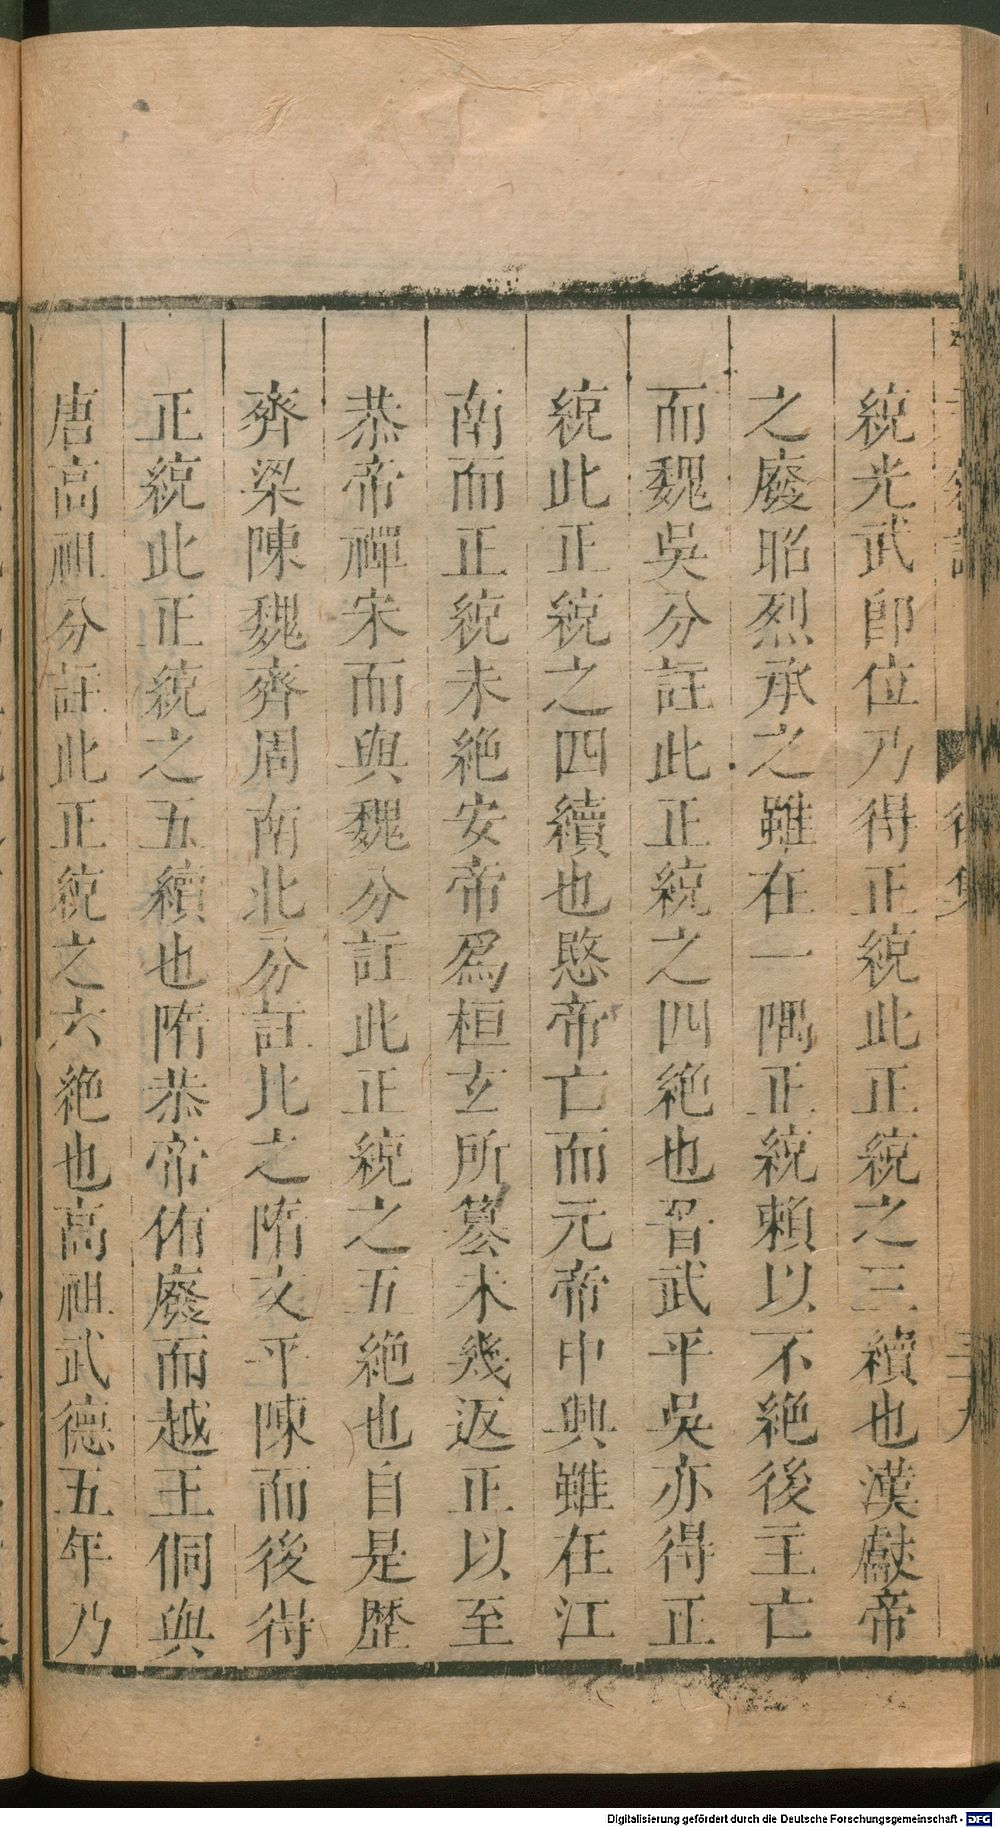 統光武即位乃得正統此正統之三續也漢獻帝
之廢昭烈承之雖在一隅正統賴以不絶後主亡
而魏吳分註此正統之四絶也晋武平吳亦得正
統此正統之四續也愍帝亡而元帝中興雖在江
南而正統未絶安帝爲桓玄所簒未幾返正以至
恭帝禪宋而與魏分註此正統之五絶也自是歴
齊梁陳魏齊周南北分註比之隋文平陳而後得
正統此正統之五續也隋恭帝侑廢而越王侗與
唐高祖分註此正統之六絶也高祖武德五年乃
Digitalisierung gefördert durch die Deutsche Forschungsgemeinschaft - DFG